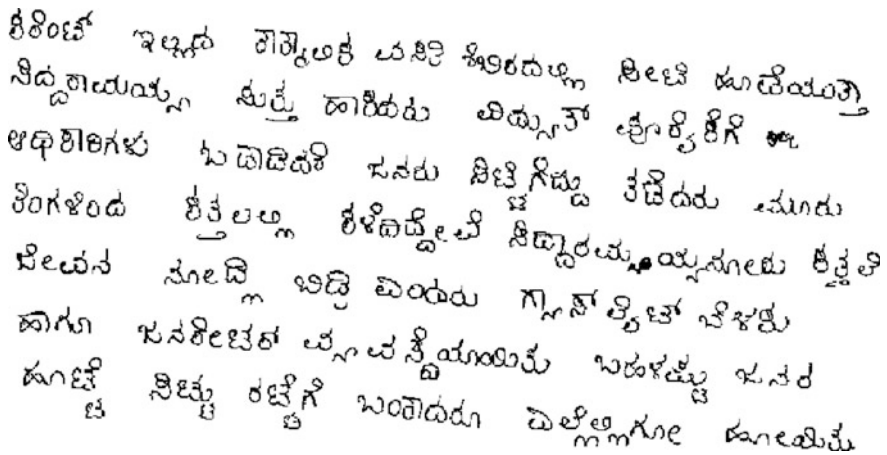 ಕರೆಂಟ್ ಇಲ್ಲದ ತಾತ್ಕಾಲಿಕ ವಸತಿ ಶಿಬಿರದಲ್ಲಿ ಭೇಟಿ ಹೂಡೆಯುತ್ತಾ
ಸಿದ್ದರಾಮಯ್ಯ ಸುತ್ತು ಹಾಕಿದರು ವಿದ್ಯುತ್ ಪೂರೈಕೆಗೆ
ಅಧಿಕಾರಿಗಳು ಓಡಾಡಿದರೆ ಜನರು ಸಿಟ್ಟಿಗೆದ್ದು ತಡೆದರು ಮೂರು
ತಿಂಗಳಿಂದ ಕತ್ತಲಲ್ಲಿ ಕಳೆದಿದ್ದೇವೆ ಸಿದ್ದಾರಮಯ್ಯನೋರು ಕತ್ತಲೆ
ಜೀವನ ನೋಡ್ಲಿ ಬಿಡ್ರಿ ಎಂದರು ಗ್ಯಾಸ್ ಲೈಟ್ ಬೆಳಕು
ಹಾಗೂ ಜನರೇಟರ್ ವ್ಯವಸ್ಥೆಯಾಯಿತು ಬಹಳಷ್ಟು ಜನರ
ಹೊಟ್ಟೆ ಸಿಟ್ಟು ರಟ್ಟೆಗೆ ಬಂತಾದರೂ ಎಲ್ಲೆಲ್ಲಿಗೋ ಹೋಯಿತು